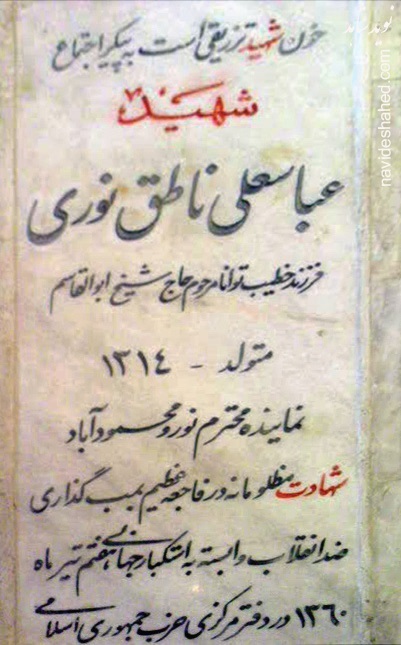 خون شهید تزریقی است به پیکر اجتماع
شهید
عباسعلی ناطق نوری
فرزند خطیب توانا مرحوم حاج شیخ ابوالقاسم
متولد - ۱۳۱٤
نماینده محترم نور و محمودآباد
شهادت مظلومانه در فاجعه عظیم بمب گذاری
ضد انقلاب وابسته به استکبار جهانی هفتم تیر ماه
۱۳٦۰ در دفتر مرکزی حزب جمهوری اسلامی
navideshahed.com